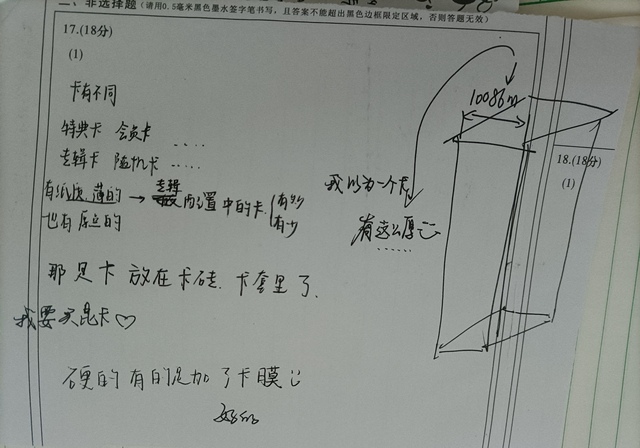 二、非选择题(请用0.5毫米黑色墨水签字笔书写,且答案不能超出黑色边框限定区域,否则答题无效)
17.(18分)
(1)
卡有不同
特典卡 会员卡 ......
专辑卡 随机卡 ......
有纸质 薄的 → 专辑 配置中的卡 有
有少
也有 的
那是卡放在卡砖 卡套里了.
我要买昆卡♡
硬的有的是加了卡膜
好的
10086m
我以为一个卡
有这么厚
18.(18分)
(1)